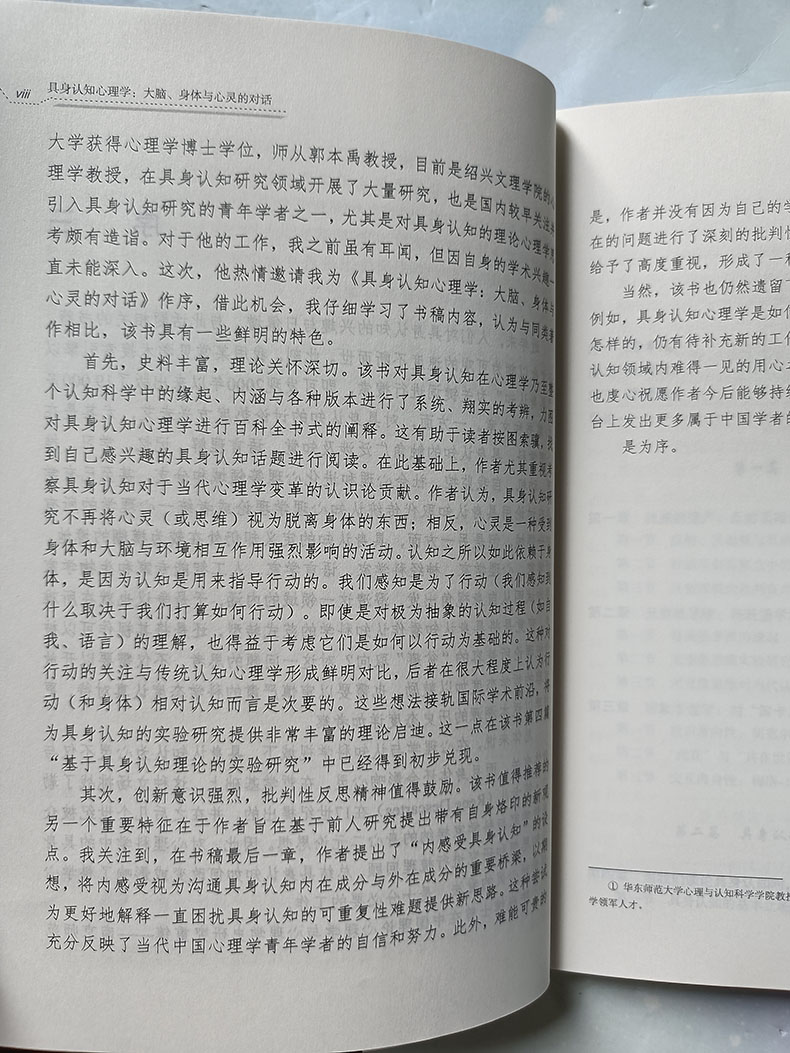 viii 具身认知心理学：大脑、身体与心灵的对话
大学获得心理学博士学位，师从郭本禹教授，目前是绍兴文理学院的心
理学教授，在具身认知研究领域开展了大量研究，也是国内较早关注并
引入具身认知研究的青年学者之一，尤其是对具身认知的理论心理学思
考颇有造诣。对于他的工作，我之前虽有耳闻，但因自身的学术兴趣一
直未能深入。这次，他热情邀请我为《具身认知心理学：大脑、身体与
心灵的对话》作序，借此机会，我仔细学习了书稿内容，认为与同类著
作相比，该书具有一些鲜明的特色。
首先，史料丰富，理论关怀深切。该书对具身认知在心理学乃至整
个认知科学中的缘起、内涵与各种版本进行了系统、翔实的考辨，力图
对具身认知心理学进行百科全书式的阐释。这有助于读者按图索骥，找
到自己感兴趣的具身认知话题进行阅读。在此基础上，作者尤其重视考
察具身认知对于当代心理学变革的认识论贡献。作者认为，具身认知研
究不再将心灵（或思维）视为脱离身体的东西；相反，心灵是一种受到
身体和大脑与环境相互作用强烈影响的活动。认知之所以如此依赖于身
体，是因为认知是用来指导行动的。我们感知是为了行动（我们感知到
什么取决于我们打算如何行动）。即使是对极为抽象的认知过程（如自
我、语言）的理解，也得益于考虑它们是如何以行动为基础的。这种对
行动的关注与传统认知心理学形成鲜明对比，后者在很大程度上认为行
动（和身体）相对认知而言是次要的。这些想法接轨国际学术前沿，将
为具身认知的实验研究提供非常丰富的理论启迪。这一点在该书第四篇
“基于具身认知理论的实验研究”中已经得到初步兑现。
其次，创新意识强烈，批判性反思精神值得鼓励。该书值得推荐的
另一个重要特征在于作者旨在基于前人研究提出带有自身烙印的新观
点。我关注到，在书稿最后一章，作者提出了“内感受具身认知”的设
想，将内感受视为沟通具身认知内在成分与外在成分的重要桥梁，以期
为更好地解释一直困扰具身认知的可重复性难题提供新思路。这种尝试
充分反映了当代中国心理学青年学者的自信和努力。此外，难能可贵的
是，作者并没有因为自己的学
在的问题进行了深刻的批判性
给予了高度重视，形成了一种
当然，该书也仍然遗留了
例如，具身认知心理学是如何
怎样的，仍有待补充新的工作
认知领域内难得一见的用心之
也虔心祝愿作者今后能够持续
台上发出更多属于中国学者的
是为序。
① 华东师范大学心理与认知科学学院教授
学领军人才。